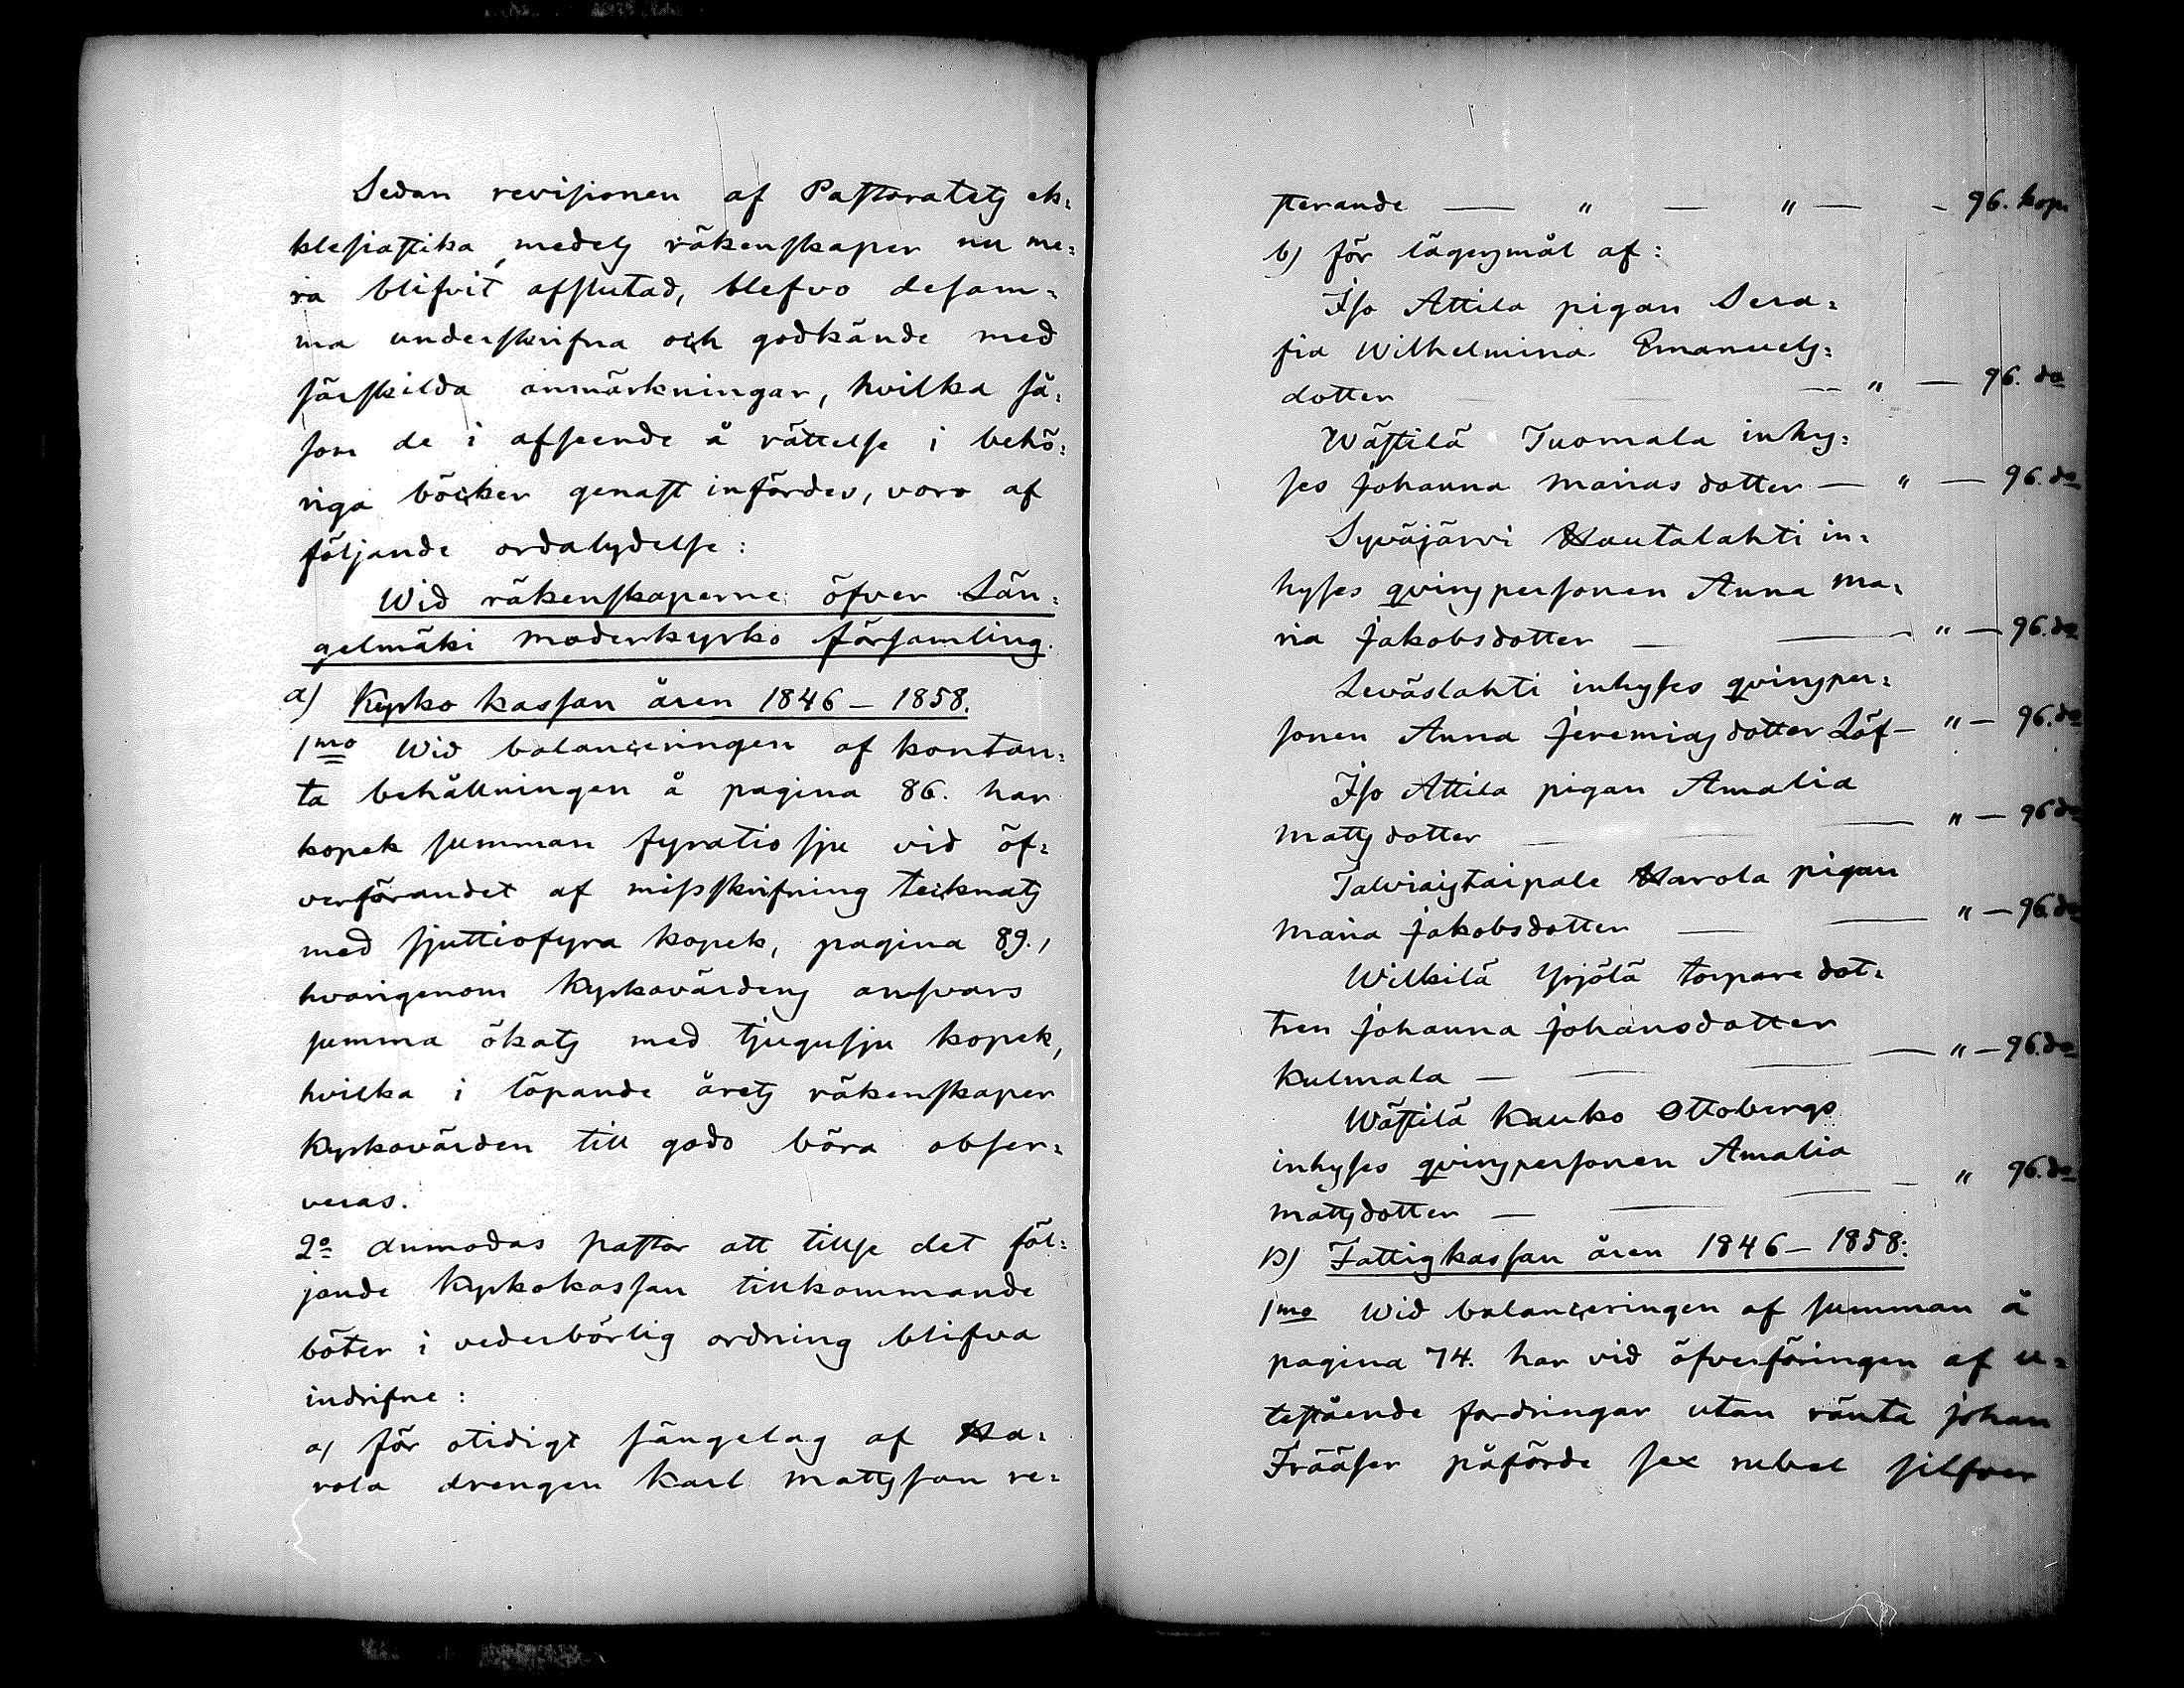 Sedan revisionen af Pastoratets ek=
klesiastika medels räkenskaper nu me=
ra blifvit afslutad, blefvo desam=
ma underskrifna och godkände med
särskilda anmärkningar, hvilka så=
som de i afseende å rättelse i behö=
riga böcker genast infördes, voro af
följande ordalydelse:
Wid räkenskaperne öfver Län=
gelmäki moderkyrko församling.
a) Kyrko kassan åren 1846 — 1858.
1mo Wid balanceringen af kontan=
ta behållningen å pagina 86. har
kopek summan fyratio sju vid öf=
verförandet af misskrifning tecknats
med sjuttiofyra kopek, pagina 89.,
hvarigenom Kyrkovärdens ansvars
summa ökats med tjugusju kopek,
hvilka i löpande årets räkenskaper
Kyrkovärden till godo böra obser=
veras.
2o Anmodas pastor att tillse det föl=
jande Kyrkokassan tillkommande
böter i vederbörlig ordning blifva
indrifne:
a) för otidigt sängelag af Ha=
rola drengen Karl Mattsson re=
sterande — " — " — - 96. kop.
b) för lägersmål af:
Iso Attila pigan Sera=
fia Wilhelmina Emanuels=
dotter — " — 96. do
Wästilä Tuomala inhy=
ses Johanna Marias dotter — " — 96. do
Syväjärvi Hautalahti in=
hyses qvinspersonen Anna Ma=
ria Jakobsdotter — — " — 96. do
Leväslahti inhyses qvinsper=
sonen Anna Jeremias dotter Löf — " — 96. do
Iso Attila pigan Amalia
Matts dotter — — " — 96 do
Talviaistaipale Harola pigan
Maria Jakobsdotter — — " — 96. do
Wilkilä Yrjölä torpare dot=
tren Johanna Johansdotter
Kulmala — — — — " — 96. do
Wästilä Kauko Ottobergs
inhyses qvinspersonen Amalia
Mattsdotter — — — — " 96. do
B) Fattigkassan åren 1846 — 1858:
1mo Wid balanceringen af summan å
pagina 74. har vid öfverföringen af u=
testående fordringar utan ränta Johan
Frääser påförde sex rubel silfver